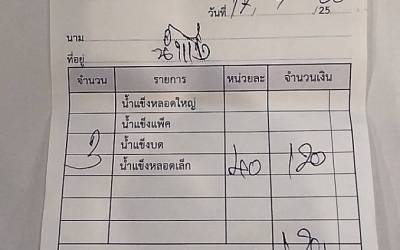 วันที่ 17, /25
นาม น้ำแข็ง
ที่อยู่
จำนวน รายการ หน่วยละ จำนวนเงิน
น้ำแข็งหลอดใหญ่
น้ำแข็งแพ็ค
น้ำแข็งบด
3 น้ำแข็งหลอดเล็ก 40 120
120